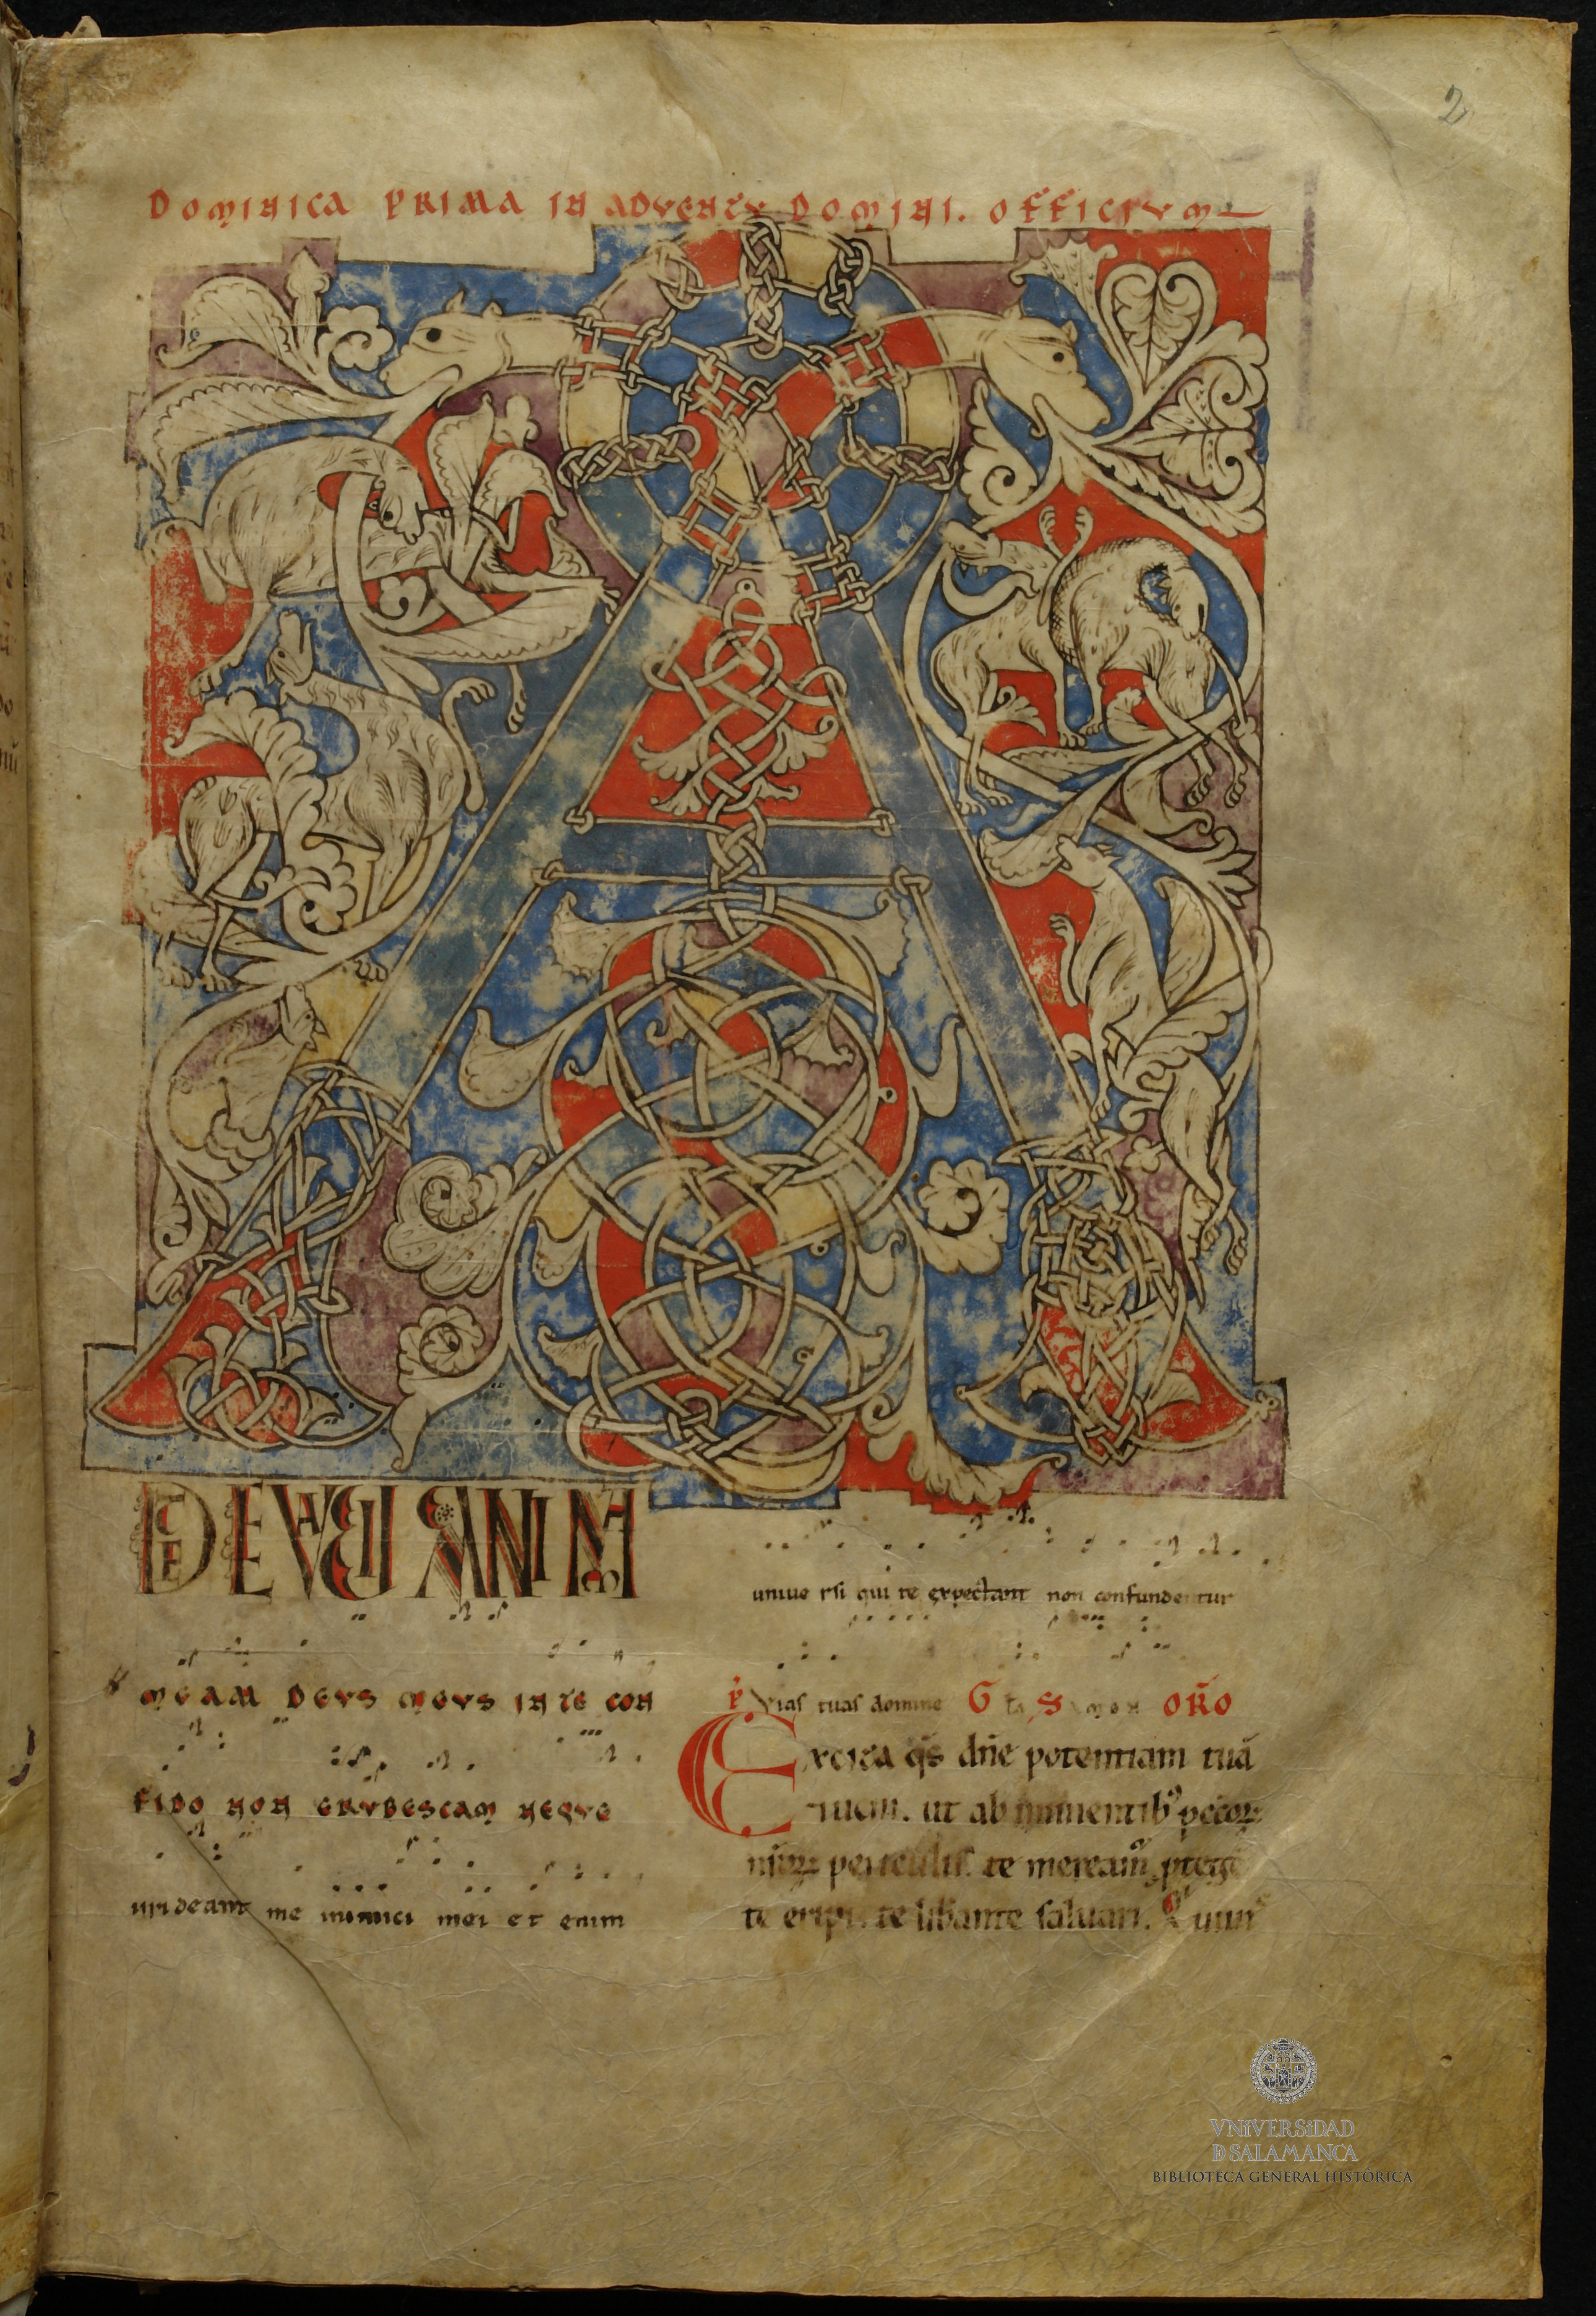 2
DOMINICA PRIMA IN ADVENTV DOMINI. OFFICIVM
A
D TE LEVAVI ANIMA
MEAM DEVS MEVS IN TE CON
FIDO NON ERVBESCAM NEQVE
irrideant me inimici mei et enim
uniue rsi qui te expectant non confundentur
P Vias tuas domine G S ORO
Excita qs dne potentiam tuā
ueni. ut ab iminentib peccoꝝ
nr̄oꝝ periculis. te mereamˀ ptege
te eripi. te libante saluari. Q uiuis
VNiVERSiDAD
D SALAMANCA
BIBLIOTECA GENERAL HISTÓRICA